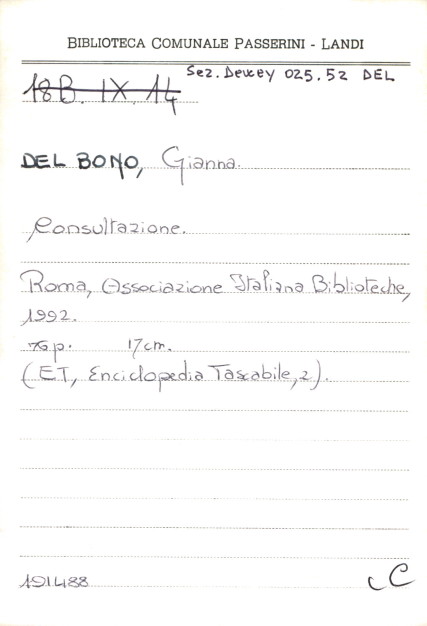 BIBLIOTECA COMUNALE PASSERINI - LANDI
Sez. Dewey 025.52 DEL
18B. IX. 14
DEL BONO, Gianna.
Consultazione.
Roma, Associazione Italiana Biblioteche,
1992.
76 p. 17 cm.
(ET, Enciclopedia Tascabile, 2).
191488
C